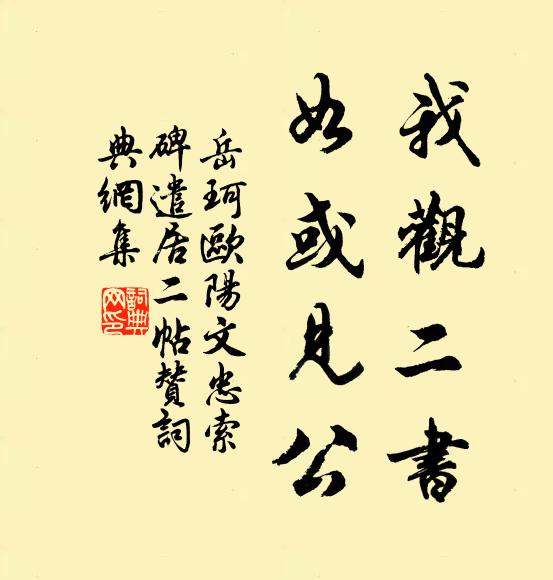 我觀二書
如或見公
岳珂歐陽文忠索
碑遣居二帖贊詞
典網集
詞典网印